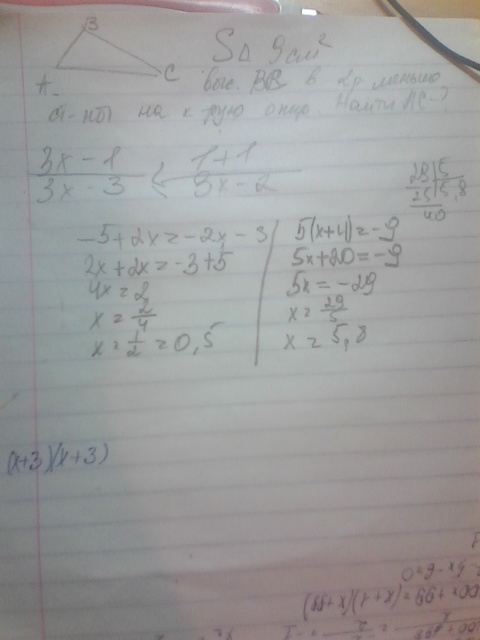 B
A
C
S△ 9 см²
выс. BB в 2р меньше
ст-ны на к-рую опир. Найти AC-?
3x-1 / 3x-3 < 1+1 / 3x-2
29 | 5
25 | 5,8
40
-5+2x=-2x-3
2x+2x=-3+5
4x=2
x=2/4
x=1/2=0,5
5(x+4)=-9
5x+20=-9
5x=-29
x=29/5
x=5,8
(x+3)(x+3)